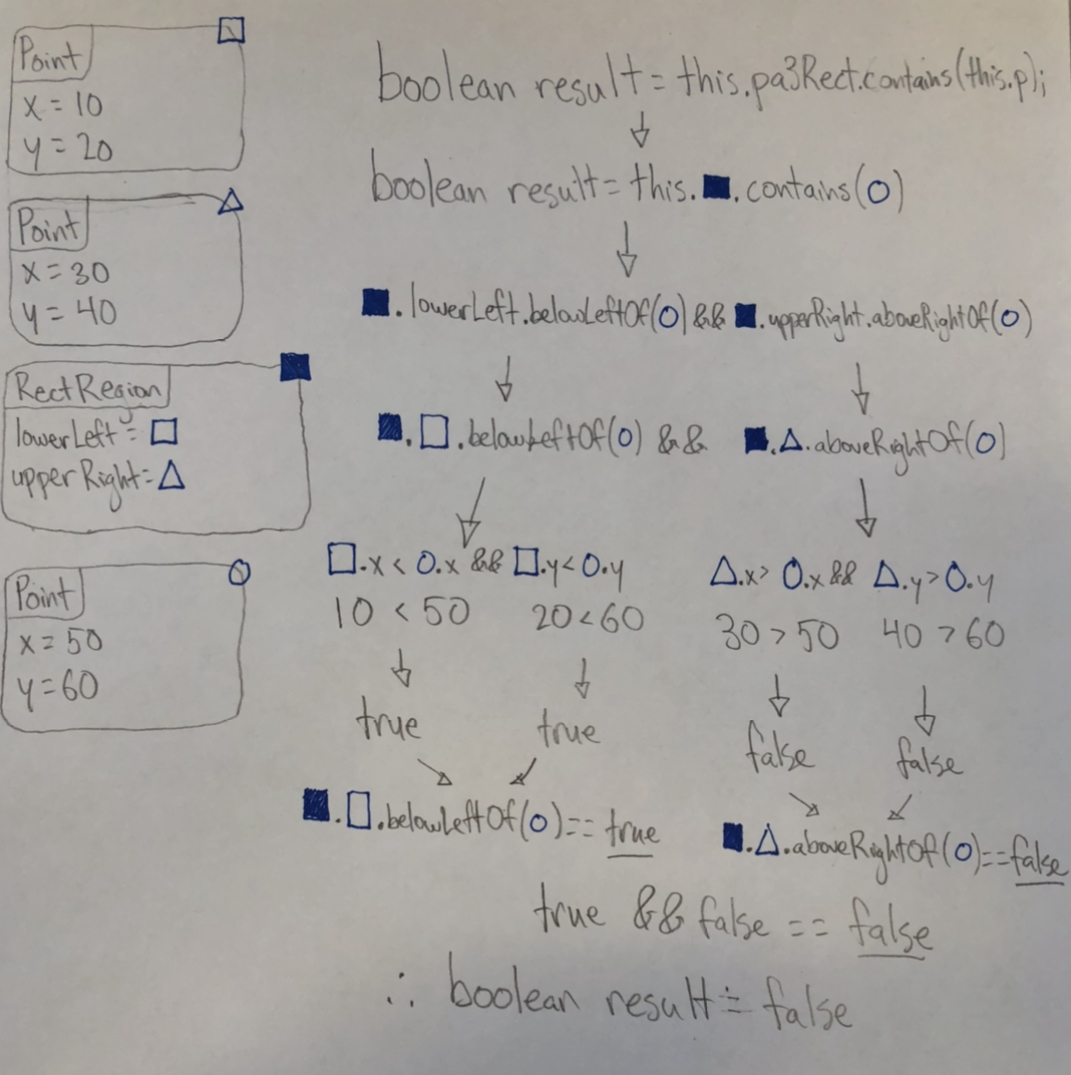 Point
x = 10
y = 20
Point
x = 30
y = 40
RectRegion
lowerLeft = □
upperRight = △
Point
x = 50
y = 60
boolean result = this.pa3Rect.contains(this.p);
boolean result = this.■.contains(○)
■.lowerLeft.belowLeftOf(○) && ■.upperRight.aboveRightOf(○)
■.□.belowLeftOf(○) && ■.△.aboveRightOf(○)
□.x < ○.x && □.y < ○.y
10 < 50 20 < 60
△.x > ○.x && △.y > ○.y
30 > 50 40 > 60
true true
false false
■.□.belowLeftOf(○) == true
■.△.aboveRightOf(○) == false
true && false == false
∴ boolean result = false